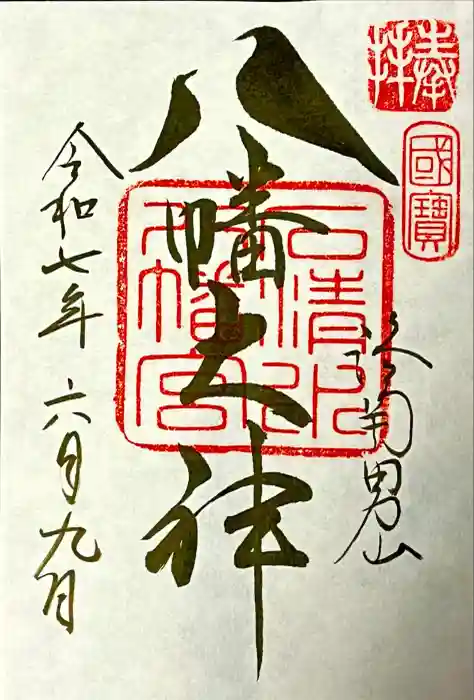 奉拝
國寶
参詣男山
八幡大神
石清水八幡宮
令和七年 六月九日